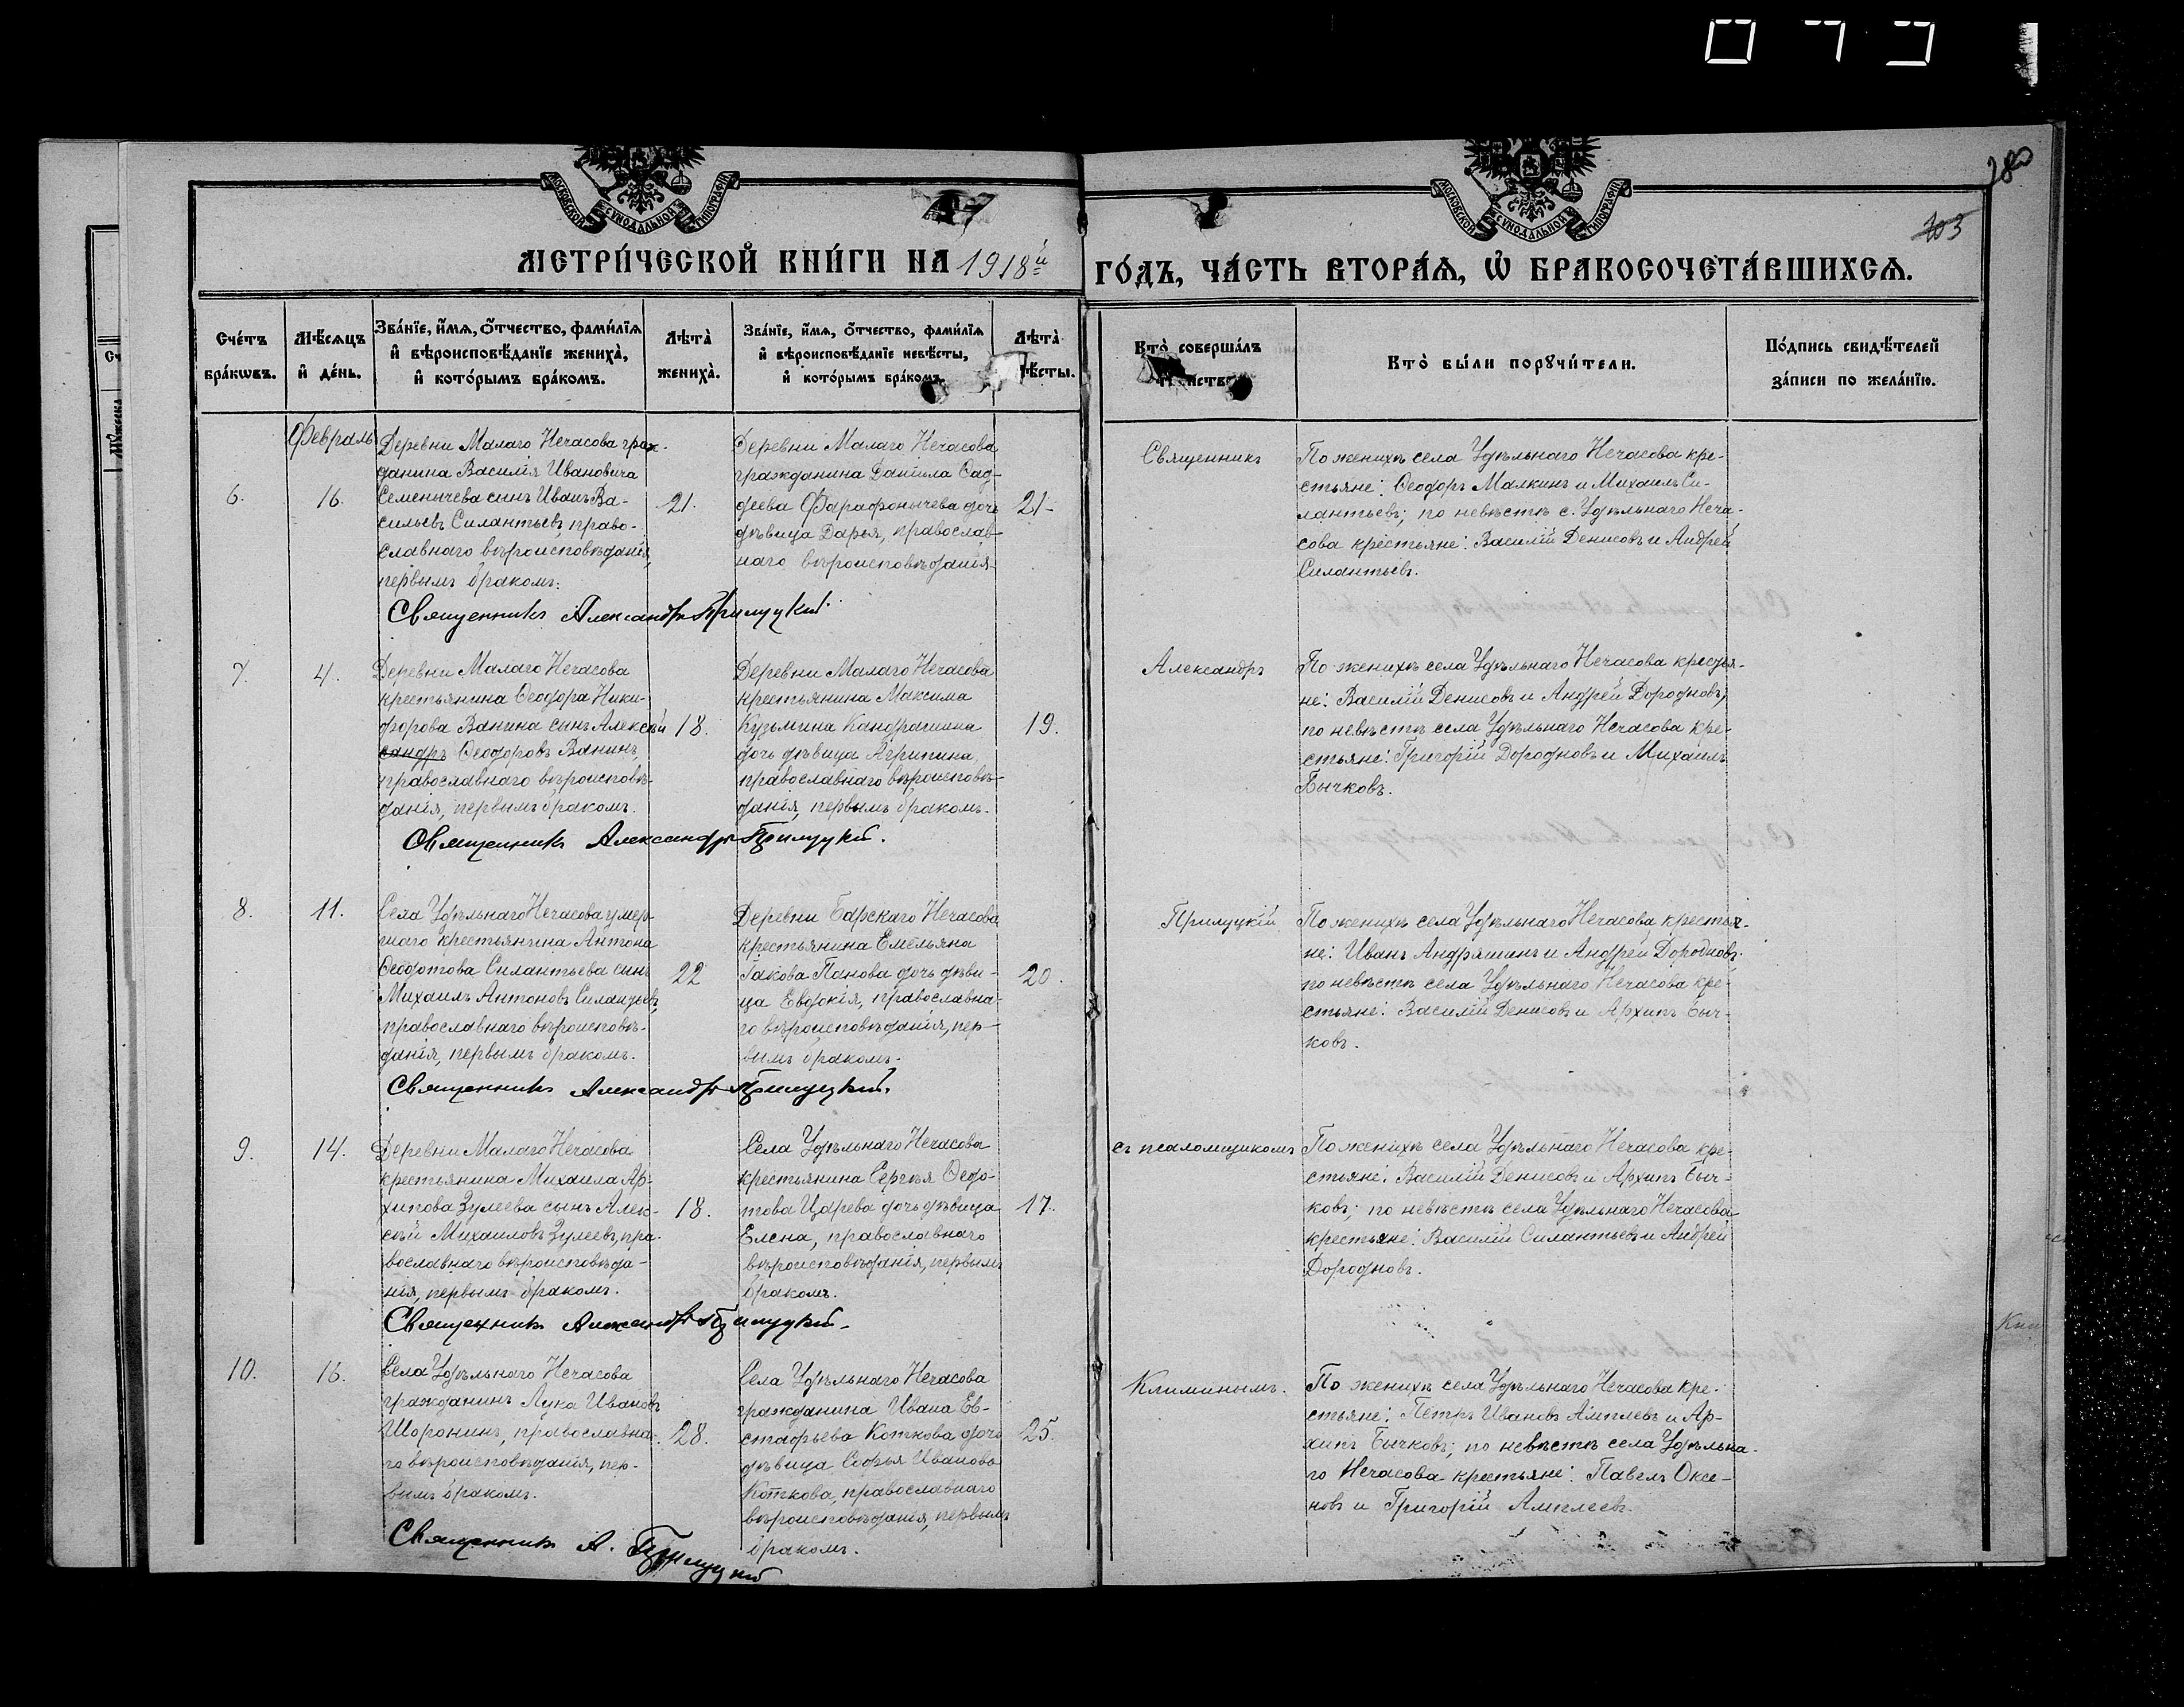 280
103
МОСКОВСКОЙ СѴНОДАЛЬНОЙ ТИПОГРАФІИ
МОСКОВСКОЙ СѴНОДАЛЬНОЙ ТИПОГРАФІИ
МЕТРИ́ЧЕСКОЙ КНИ́ГИ НА 1918й ГО́ДЪ, ЧА́СТЬ ВТОРА́Ѧ, Ѡ҆ БРАКОСОЧЕТА́ВШИХСѦ.
Сче́тъ бра́кѡвъ.
Мѣ́сѧцъ и҆ де́нь.
Зва́нїе, и҆́мѧ, о҆́тчество, фами́лїѧ и҆ вѣроисповѣ́данїе жениха̀, и҆ кото́рымъ бра́комъ.
Лѣта̀ жениха̀.
Зва́нїе, и҆́мѧ, о҆́тчество, фами́лїѧ и҆ вѣроисповѣ́данїе невѣ́сты, и҆ кото́рымъ бра́комъ.
Лѣта̀ невѣ́сты.
Кто̀ соверша́лъ
Кто̀ бы́ли порꙋчи́тели.
По́дпись свидѣ́телей за́писи по жела́нїю.
Февраль
6.
16.
Деревни Малаго Нечасова граж-
данина Василія Ивановича
Семенычева сынъ Иванъ Ва-
сильевъ Силантьевъ, право-
славнаго вѣроисповѣданія,
первымъ бракомъ.
21.
Деревни Малаго Нечасова
гражданина Даніила Фад-
деева Фарафонычева дочь
дѣвица Дарья, православ-
наго вѣроисповѣданія
21-
Священникъ
По женихѣ села Удѣльнаго Нечасова кре-
стьяне: Ѳеодоръ Малкинъ и Михаилъ Си-
лантьевъ; по невѣстѣ с. Удѣльнаго Неча-
сова крестьяне: Василій Денисовъ и Андрей
Силантьевъ.
Священникъ Александръ Прилуцкій.
7.
4.
Деревни Малаго Нечасова
крестьянина Ѳеодора Ники-
форова Ванина сынъ Алексѣй
сандръ Ѳеодоровъ Ванинъ,
православнаго вѣроисповѣ-
данія, первымъ бракомъ.
18.
Деревни Малаго Нечасова
крестьянина Максима
Кузьмина Кандрашина
дочь дѣвица Агрипина,
православнаго вѣроисповѣ-
данія, первымъ бракомъ.
19.
Александръ
По женихѣ села Удѣльнаго Нечасова крестья-
не: Василій Денисовъ и Андрей Дородновъ;
по невѣстѣ села Удѣльнаго Нечасова кре-
стьяне: Григорій Дородновъ и Михаилъ
Бычковъ.
Священникъ Александръ Прилуцкій.
8.
11.
Села Удѣльнаго Нечасова умер-
шаго крестьянина Антона
Ѳеодотова Силантьева сынъ
Михаилъ Антоновъ Силантьевъ,
православнаго вѣроисповѣ-
данія, первымъ бракомъ.
22
Деревни Барскаго Нечасова
крестьянина Емельяна
Іакова Панова дочь дѣви-
ца Евдокія, православна-
го вѣроисповѣданія, пер-
вымъ бракомъ.
20.
Прилуцкій
По женихѣ села Удѣльнаго Нечасова крестья-
не: Иванъ Андряшинъ и Андрей Дородновъ;
по невѣстѣ села Удѣльнаго Нечасова кре-
стьяне: Василій Денисовъ и Архипъ Быч-
ковъ.
Священникъ Александръ Прилуцкій.
9.
14.
Деревни Малаго Нечасова
крестьянина Михаила Ар-
хипова Зулеева сынъ Алек-
сѣй Михаиловъ Зулеевъ, пра-
вославнаго вѣроисповѣда-
нія, первымъ бракомъ.
18.
Села Удѣльнаго Нечасова
крестьянина Сергѣя Ѳедо-
това Царева дочь дѣвица
Елена, православнаго
вѣроисповѣданія, первымъ
бракомъ.
17.
съ псаломщикомъ
По женихѣ села Удѣльнаго Нечасова кре-
стьяне: Василій Денисовъ и Архипъ Быч-
ковъ; по невѣстѣ села Удѣльнаго Нечасова
крестьяне: Василій Силантьевъ и Андрей
Дородновъ.
Священникъ Александръ Прилуцкій.
10.
16.
Села Удѣльнаго Нечасова
гражданинъ Лука Ивановъ
Шоронинъ, православна-
го вѣроисповѣданія, пер-
вымъ бракомъ.
28.
Села Удѣльнаго Нечасова
гражданина Ивана Ев-
стафьева Коткова дочь
дѣвица Софья Иванова
Коткова, православнаго
вѣроисповѣданія, первымъ
бракомъ.
25.
Климинымъ.
По женихѣ села Удѣльнаго Нечасова кре-
стьяне: Петръ Ивановъ Амплевъ и Ар-
хипъ Бычковъ; по невѣстѣ села Удѣльна-
го Нечасова крестьяне: Павелъ Оксе-
новъ и Григорій Амплеевъ.
Священникъ А. Прилуцкій